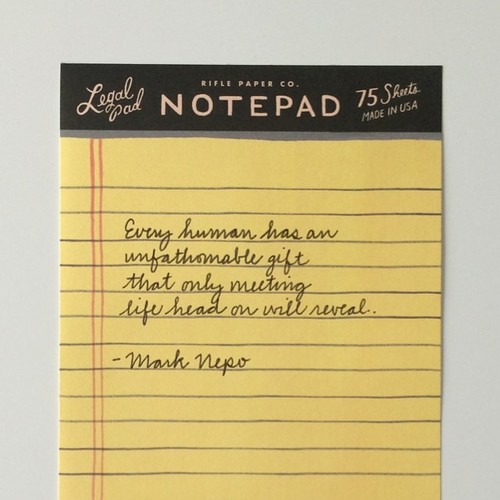 Legal Pad
RIFLE PAPER CO.
NOTEPAD
75 Sheets
MADE IN USA
Every human has an
unfathomable gift
that only meeting
life head on will reveal.
- Mark Nepo